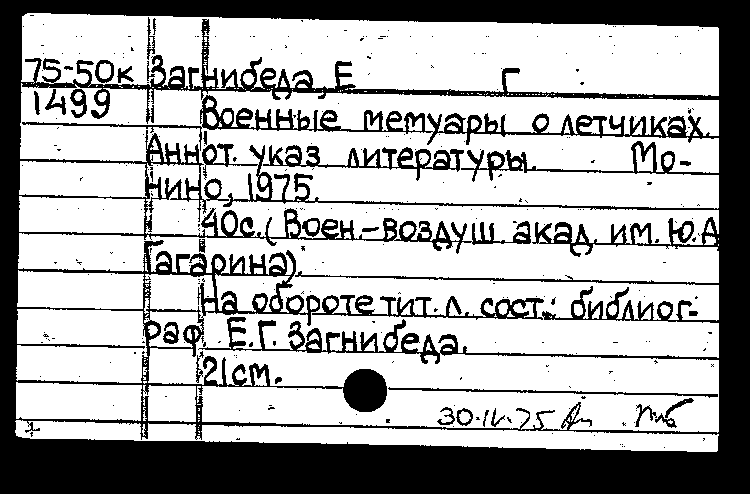 75-50к Загнибеда, Е Г
1499 Военные мемуары о летчиках.
Аннот. указ литературы. Мо-
нино, 1975.
40с. (Воен.-воздуш. акад. им. Ю.А
Гагарина).
На обороте тит. л. сост.: библиог-
раф Е.Г. Загнибеда.
21см.
30.IV.75